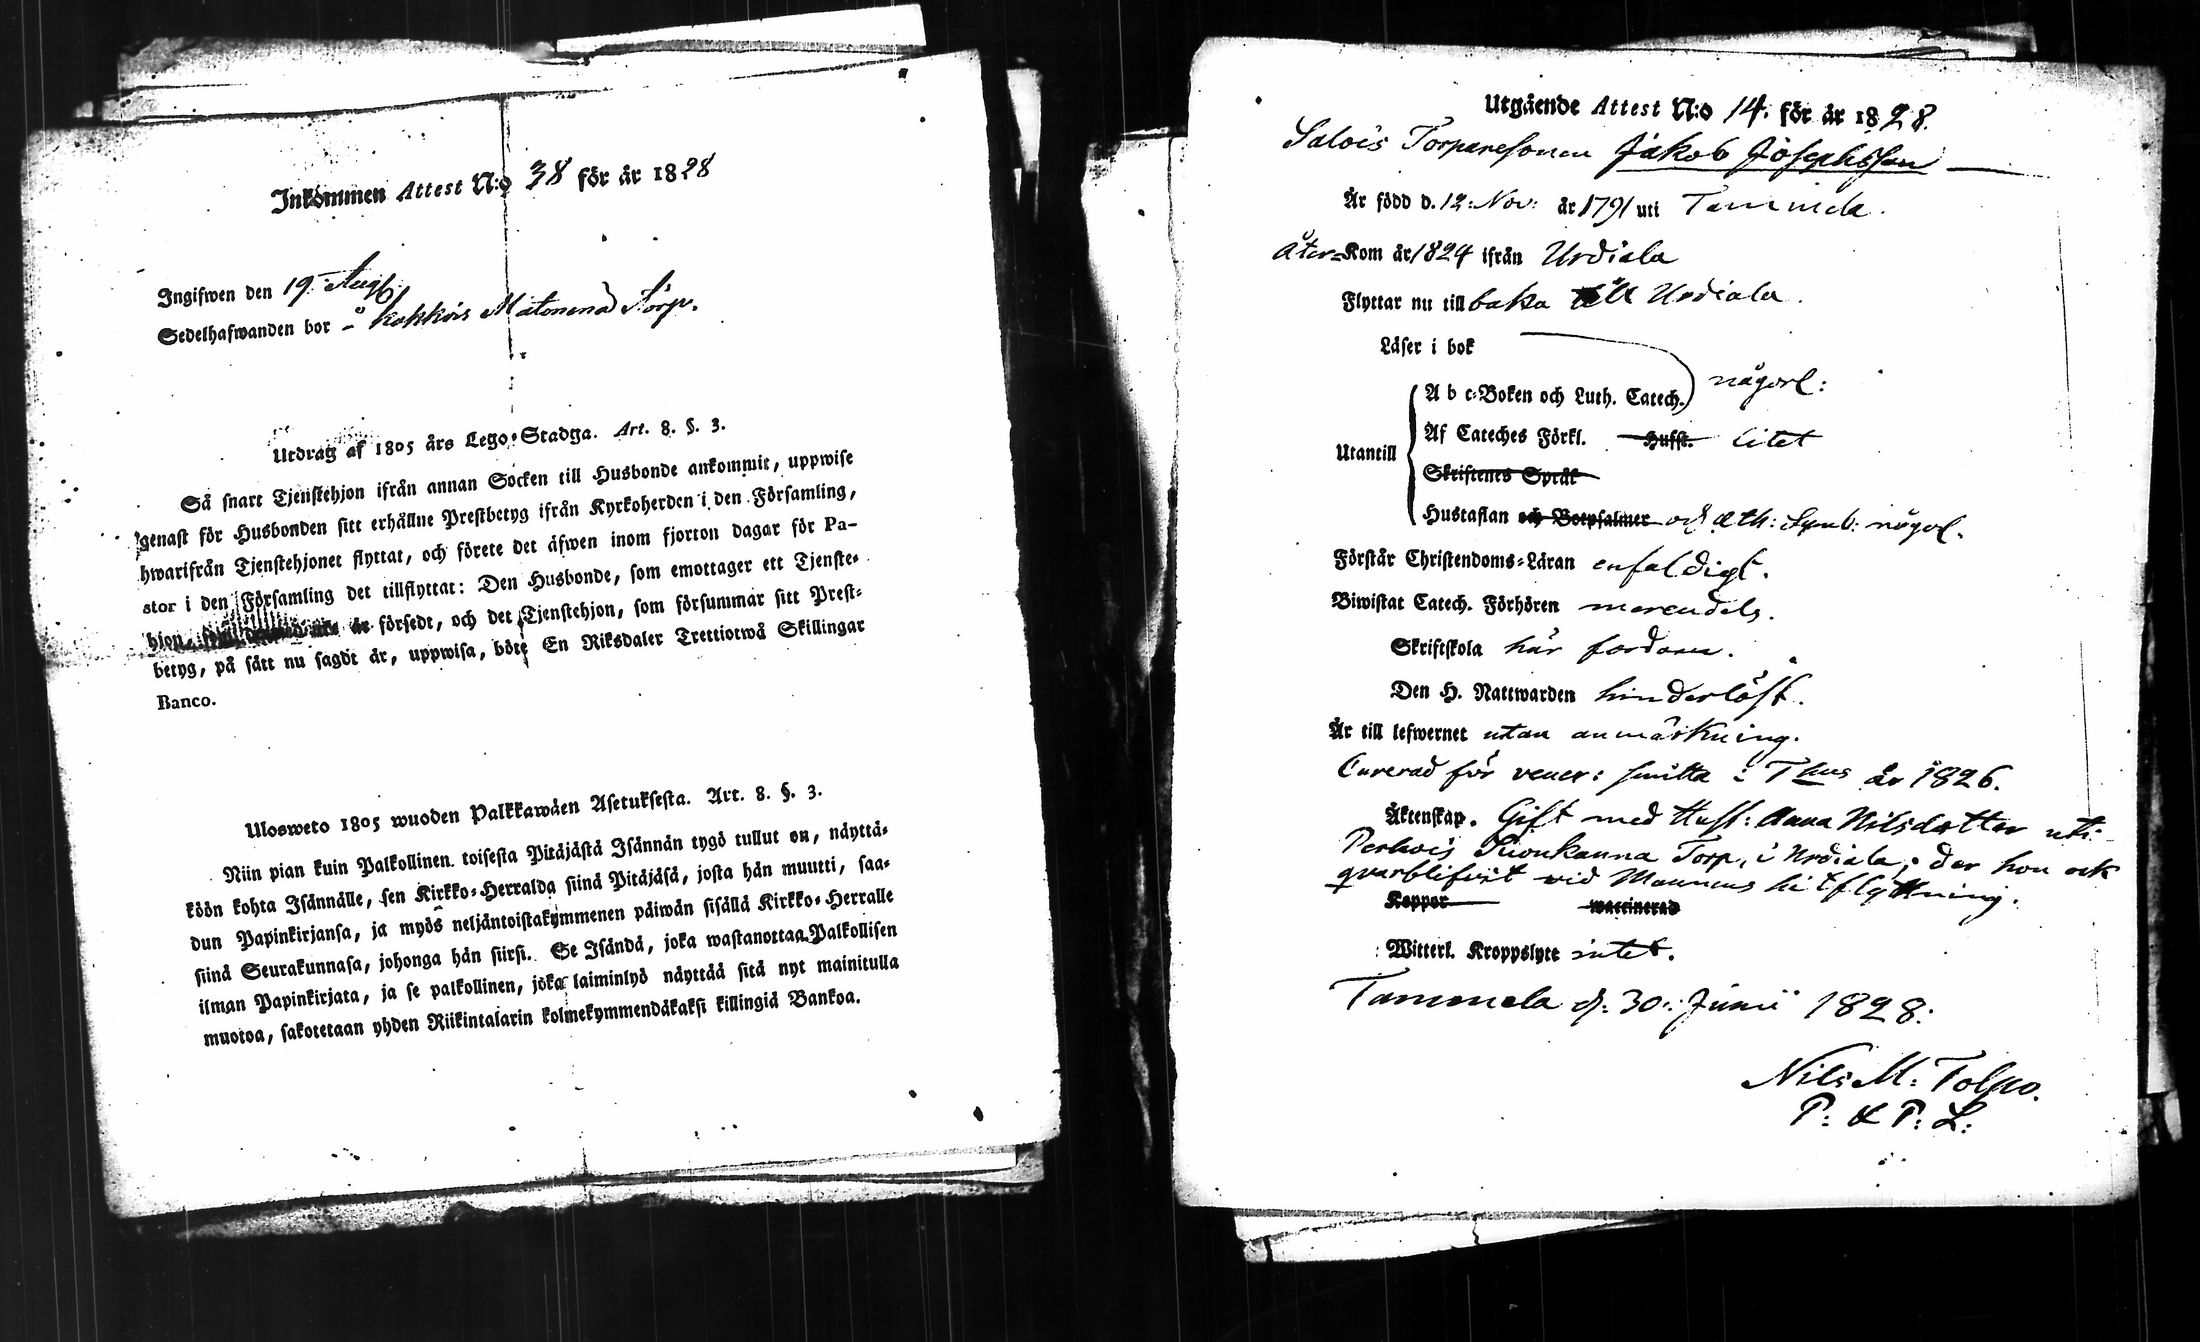 Inkommen Attest N:o 38 för år 1828
Ingifwen den 19 Aug
Sedelhafwanden bor å Kokkois Torp.
Utdrag af 1805 års Lego-Stadga. Art. 8. §. 3.
Så snart Tjenstehjon ifrån annan Socken till Husbonde ankommit, uppwise
genast för Husbonden sitt erhållne Prestbetyg ifrån Kyrkoherden i den Församling,
hwarifrån Tjenstehjonet flyttat, och förete det äfwen inom fjorton dagar för Pa-
stor i den Församling det tillflyttat: Den Husbonde, som emottager ett Tjenste-
hjon, är försedt, och det Tjenstehjon, som försummar sitt Prest-
betyg, på sätt nu sagdt är, uppwisa, böte En Riksdaler Trettiotwå Skillingar
Banco.
Ulosweto 1805 wuoden Palkkawäen Asetuksesta. Art. 8. §. 3.
Niin pian kuin Palkollinen toisesta Pitäjästä Isännän tygö tullut on, näyttä-
köön kohta Isännälle, sen Kirkko-Herralda siinä Pitäjäsä, josta hän muutti, saa-
dun Papinkirjansa, ja myös neljäntoistakymmenen päiwän sisällä Kirkko-Herralle
siinä Seurakunnasa, johonga hän siirsi. Se Isändä, joka wastanottaa Palkollisen
ilman Papinkirjata, ja se palkollinen, joka laiminlyö näyttää sitä nyt mainitulla
muotoa, sakotetaan yhden Riikintalarin kolmekymmendäkaksi killingiä Bankoa.
Utgående Attest N:o 14. för år 1828.
Salois Torparesonen Jakob Josephsson
Är född d. 12: Nov: år 1791 uti Tammela.
åter-Kom år 1824 ifrån Urdiala
Flyttar nu till baka till Urdiala.
Läser i bok
A b c-Boken och Luth. Catech. någorl:
Utantill
Af Cateches Förkl. Husst. litet
Skriftenes Språk
Hustaflan och Botpsalmer och Ath: Symb: någorl.
Förstår Christendoms-Läran enfaldigt.
Biwistat Catech. Förhören merendels.
Skriftskola här fordom.
Den H. Nattwarden hinderlöst.
Är till lefwernet utan anmärkning.
Curerad för vener: smitta i Thus år 1826.
Äktenskap. Gift med Hust: Anna Nilsdotter uti
Perhois Torp, i Urdiala, der hon ock
qvarblifvit wid Mannens hitflyttning.
Koppor waccinerad
Witterl. Kroppslyte intet.
Tammela d. 30: Junii 1828:
Nils M: Tolpo.
P: & P: L: